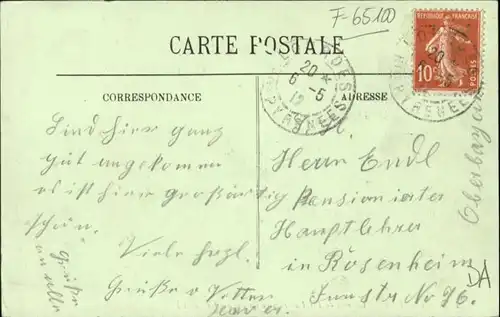 F-65100
CARTE POSTALE
CORRESPONDANCE
ADRESSE
REPUBLIQUE FRANÇAISE
10
POSTES
20
6 -5
12
PYRENEES
PYRENEES
Sind hier ganz
gut angekommen
es ist hier großartig
schön.
Viele herzl.
Grüße v Vetter
Grüße
an alle
Herrn Endl
Pensionierter
Hauptlehrer
in Rosenheim
Innstr No 76.
Oberbayern
DA